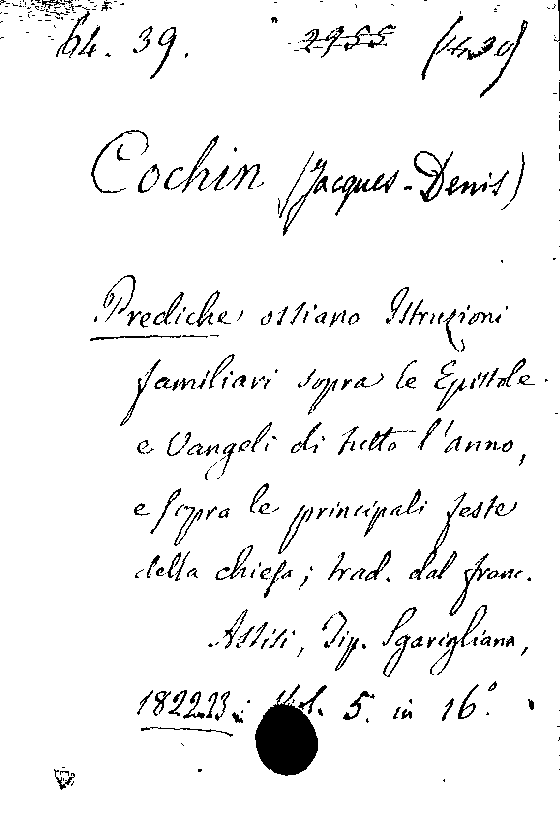 64. 39. 2955 (1430)
Cochin (Jacques-Denis)
Prediche ossiano Istruzioni
familiari sopra le Epistole
e Vangeli di tutto l'anno,
e sopra le principali feste
della chiesa; trad. dal franc.
Assisi, Tip. Sgarigliana,
1822.23; Vol. 5. in 16º.